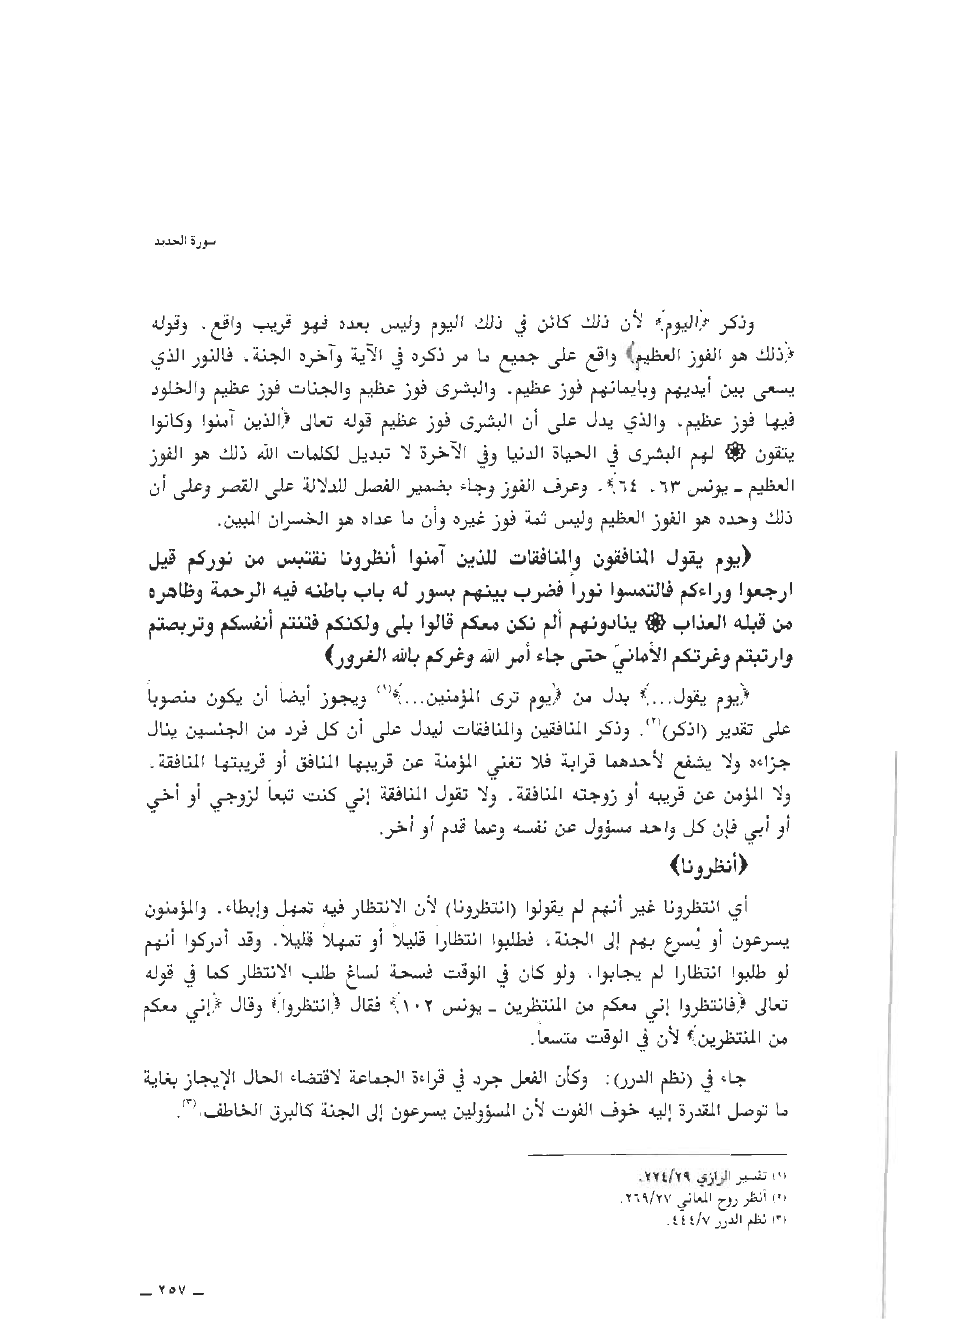 سورة الحديد
وذكر ﴿اليوم﴾ لأن ذلك كائن في ذلك اليوم وليس بعده فهو قريب واقع. وقوله
﴿ذلك هو الفوز العظيم﴾ واقع على جميع ما مر ذكره في الآية وآخره الجنة. فالنور الذي
يسعى بين أيديهم وبايمانهم فوز عظيم. والبشرى فوز عظيم والجنات فوز عظيم والخلود
فيها فوز عظيم. والذي يدل على أن البشرى فوز عظيم قوله تعالى ﴿الذين آمنوا وكانوا
يتقون ۞ لهم البشرى في الحياة الدنيا وفي الآخرة لا تبديل لكلمات الله ذلك هو الفوز
العظيم ـ يونس ٦٣، ٦٤﴾. وعرف الفوز وجاء بضمير الفصل للدلالة على القصر وعلى أن
ذلك وحده هو الفوز العظيم وليس ثمة فوز غيره وأن ما عداه هو الخسران المبين.
﴿يوم يقول المنافقون والمنافقات للذين آمنوا أنظرونا نقتبس من نوركم قيل
ارجعوا وراءكم فالتمسوا نوراً فضرب بينهم بسور له باب باطنه فيه الرحمة وظاهره
من قبله العذاب ۞ ينادونهم ألم نكن معكم قالوا بلى ولكنكم فتنتم أنفسكم وتربصتم
وارتبتم وغرتكم الأمانيّ حتى جاء أمر الله وغركم بالله الغرور﴾
﴿يوم يقول...﴾ بدل من ﴿يوم ترى المؤمنين...﴾(١) ويجوز أيضاً أن يكون منصوباً
على تقدير (اذكر)(٢). وذكر المنافقين والمنافقات ليدل على أن كل فرد من الجنسين ينال
جزاءه ولا يشفع لأحدهما قرابة فلا تغني المؤمنة عن قريبها المنافق أو قريبتها المنافقة.
ولا المؤمن عن قريبه أو زوجته المنافقة. ولا تقول المنافقة إني كنت تبعاً لزوجي أو أخي
أو أبي فإن كل واحد مسؤول عن نفسه وعما قدم أو أخر.
﴿أنظرونا﴾
أي انتظرونا غير أنهم لم يقولوا (انتظرونا) لأن الانتظار فيه تمهل وإبطاء. والمؤمنون
يسرعون أو يُسرع بهم إلى الجنة. فطلبوا انتظاراً قليلاً أو تمهلاً قليلاً. وقد أدركوا أنهم
لو طلبوا انتظارا لم يجابوا. ولو كان في الوقت فسحة لساغ طلب الانتظار كما في قوله
تعالى ﴿فانتظروا إني معكم من المنتظرين ـ يونس ١٠٢﴾ فقال ﴿انتظروا﴾ وقال ﴿إني معكم
من المنتظرين﴾ لأن في الوقت متسعاً.
جاء في (نظم الدرر): وكأن الفعل جرد في قراءة الجماعة لاقتضاء الحال الإيجاز بغاية
ما توصل المقدرة إليه خوف الفوت لأن المسؤولين يسرعون إلى الجنة كالبرق الخاطف.(٣).
(١) تفسير الرازي ٢٢٤/٢٩.
(٢) أنظر روح المعاني ٢٦٩/٢٧.
(٣) نظم الدرر ٤٤٤/٧.
ـ ٢٥٧ ـ